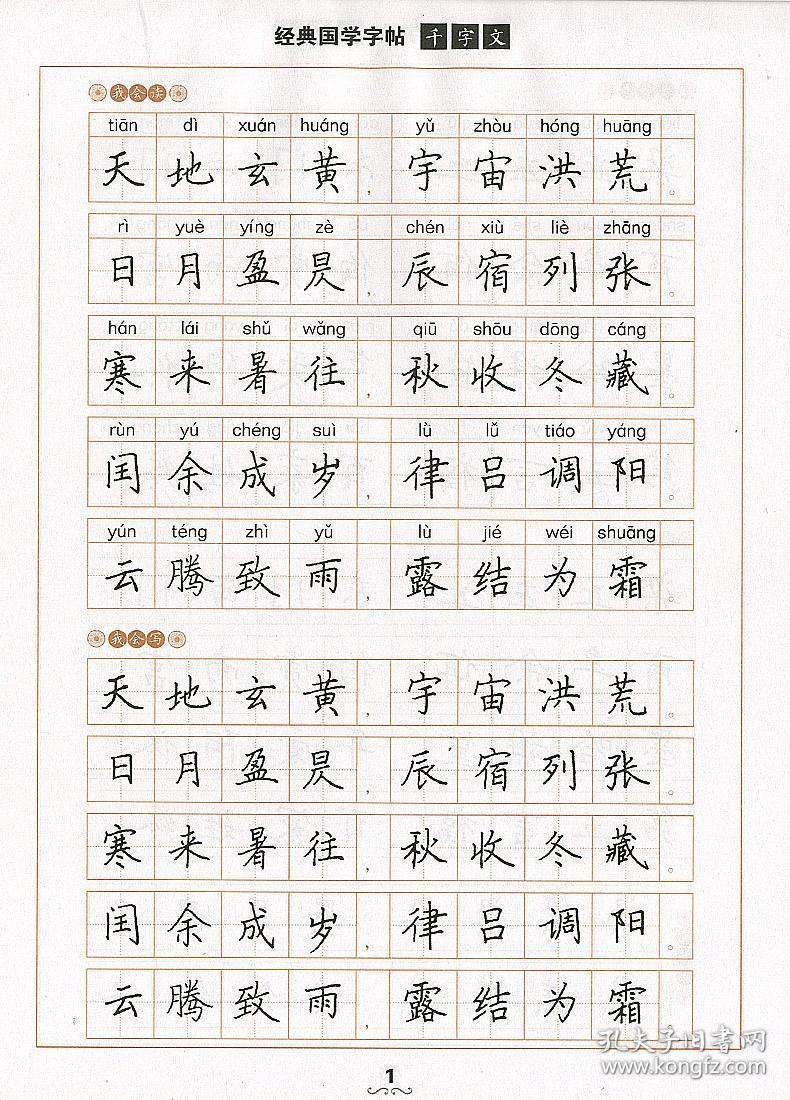 经典国学字帖 千字文
我会读
tiān dì xuán huáng yǔ zhòu hóng huāng
天地玄黄，宇宙洪荒。
rì yuè yíng zè chén xiù liè zhāng
日月盈昃，辰宿列张。
hán lái shǔ wǎng qiū shōu dōng cáng
寒来暑往，秋收冬藏。
rùn yú chéng suì lǜ lǚ tiáo yáng
闰余成岁，律吕调阳。
yún téng zhì yǔ lù jié wéi shuāng
云腾致雨，露结为霜。
我会写
天地玄黄，宇宙洪荒。
日月盈昃，辰宿列张。
寒来暑往，秋收冬藏。
闰余成岁，律吕调阳。
云腾致雨，露结为霜。
1
孔夫子旧书网
www.kongfz.com